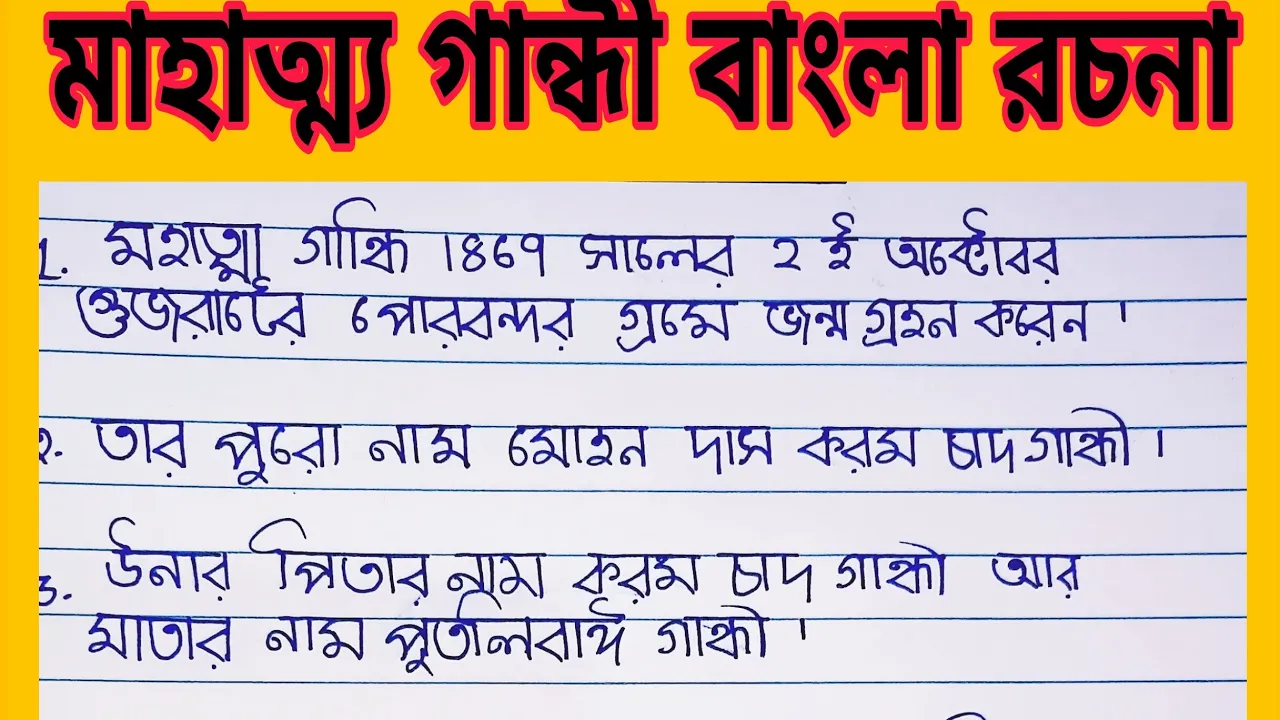 মাহাত্ম্য গান্ধী বাংলা রচনা
1. মহাত্মা গান্ধি 1869 সালের 2 ই অক্টোবর
গুজরাটের পোরবন্দর গ্রামে জন্ম গ্রহন করেন।
2. তার পুরো নাম মোহন দাস করম চাদ গান্ধী।
3. উনার পিতার নাম করম চাদ গান্ধী আর
মাতার নাম পুতলিবাঈ গান্ধী।